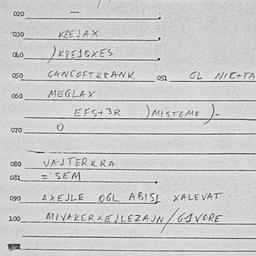 020 —
030 KBEJAX
040 )KBEJQXES
050 GANCOFTKRANK 051 GL NIE+TA
060 MEGLAX
EFS+3R )MISTOME)-
070 0
080 VAJTERKRA
081 = SEM
090 AXEJLE OGL ABISJ XALEVAT
100 MIVAKERXEJLEZAJN/GJVORE